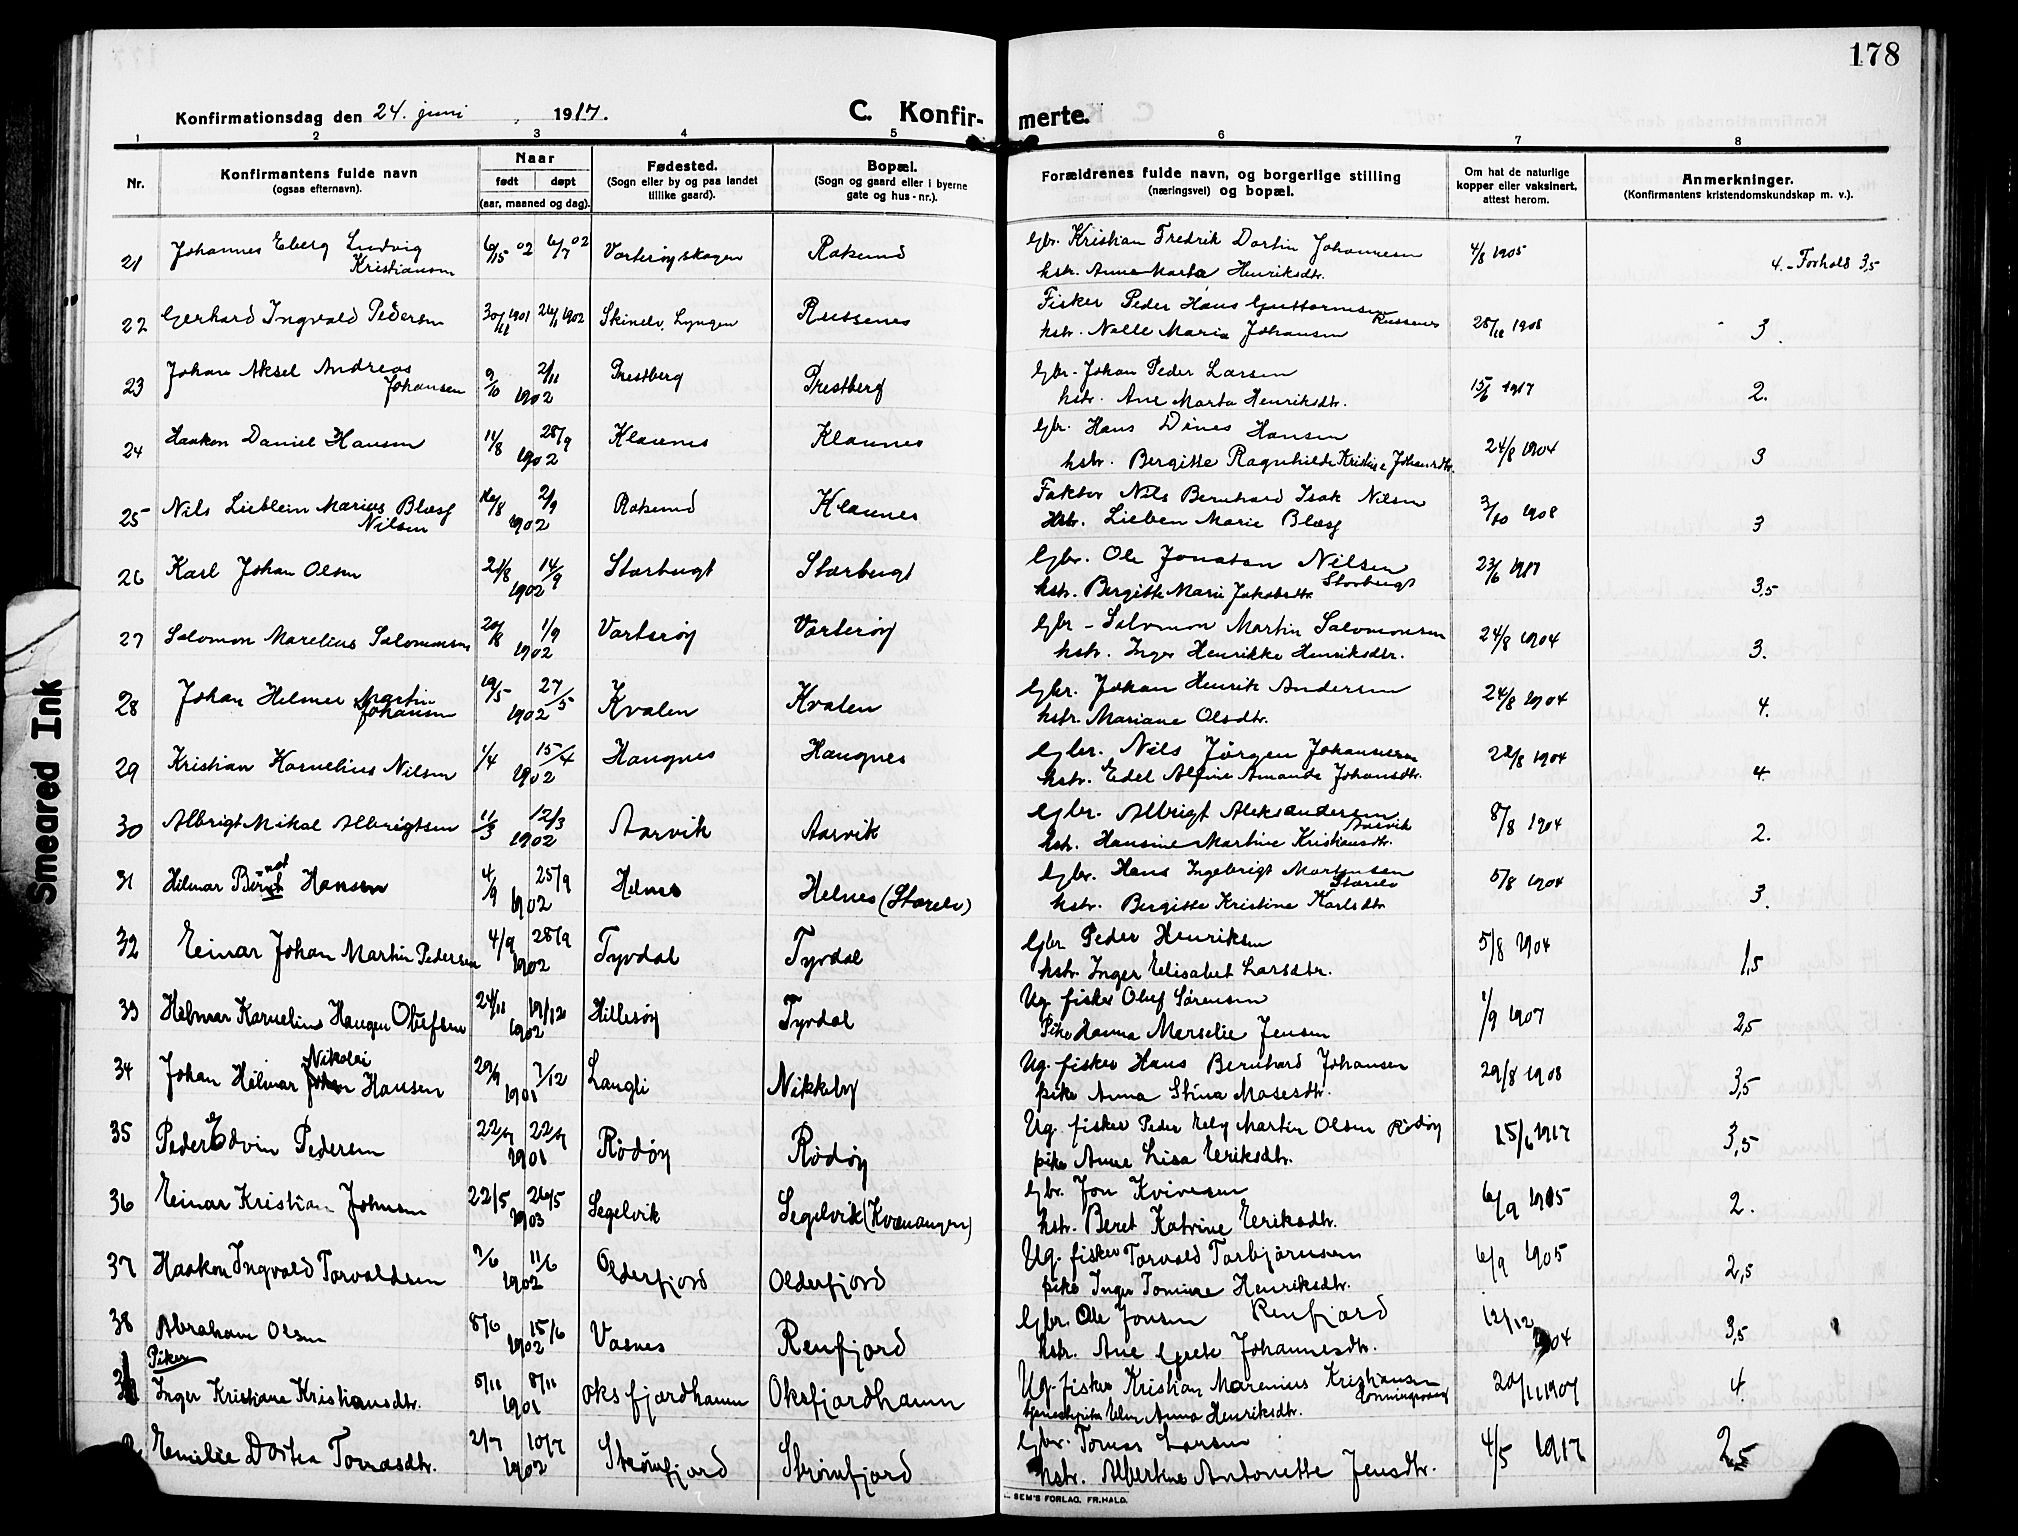 178
Konfirmationsdag den 24. juni, 1917. C. Konfirmerte.
1 2 3 4 5 6 7 8
Nr. Konfirmantens fulde navn (ogsaa efternavn). Naar født døpt (aar, maaned og dag). Fødested. (Sogn eller by og paa landet tillike gaard). Bopæl. (Sogn og gaard eller i byerne gate og hus-nr.). Forældrenes fulde navn, og borgerlige stilling (næringsvei) og bopæl. Om hat de naturlige kopper eller vaksinert, attest herom. Anmerkninger. (Konfirmantens kristendomskundskap m. v.).
21 Johannes Eberg Ludvig Kristiansen 6/15 02 6/7 02 Vorterøyskagen Rakenud Gbr. Kristian Fredrik Dortin Johannesen 4/8 1905 4.-Forhold 3,5
hstr. Anna Marta Henriksdtr.
22 Gerhard Ingvald Pedersen 30/11 1901 26/1 1902 Skinelv, Lyngen Russenes Fisker Peder Hans Guttormsen Russenes 28/11 1908 3.
hstr. Nelle Maria Johansen
23 Johan Aksel Andreas Johansen 9/10 2/11 1902 Prestberg Prestberg Gbr. Johan Peder Larsen 15/6 1917 2.
hstr. Ane Marta Henriksdtr.
24 Haakon Daniel Hansen 11/8 28/9 1902 Klaunes Klaunes Gbr. Hans Dines Hansen 24/8 1904 3
hstr. Bergitte Ragnhilde Kristine Johansdtr.
25 Nils Lieblein Marius Blæsg Nilsen 16/8 2/9 1902 Rakenud Klaunes Faktor Nils Bernhard Isak Nilsen 3/10 1908 3
hstr. Lieben Marie Blæsg
26 Karl Johan Olsen 21/8 14/9 1902 Storbugt Storbugt Gbr. Ole Jonatan Nilsen Storbugt 23/6 1917 3,5
hstr. Bergitte Marie Jakobsdtr
27 Salomon Marelius Salomonsen 20/8 1/9 1902 Vorterøy Vorterøy Gbr - Salomon Martin Salomonsen 24/8 1904 3.
hstr. Inger Henrikke Henriksdtr.
28 Johan Helmer Martin Johansen 19/5 27/5 1902 Kvalen Kvalen Gbr. Johan Henrik Andersen 24/8 1904 4.
hstr. Mariane Olsdtr.
29 Kristian Kornelius Nilsen 1/4 15/4 1902 Haugnes Haugnes Gbr. Nils Jørgen Johannesen 22/8 1904 4.
hstr. Edel Alfine Amanda Johansdtr.
30 Albrigt Mikal Albrigtsen 11/3 12/3 1902 Aarvik Aarvik Gbr. Albrigt Aleksandersen Aarvik 8/8 1904 2.
hstr. Hansine Martine Kristiansdtr.
31 Hilmar Bernt Hansen 4/9 25/9 1902 Helnes Helnes (Storelv) Gbr. Hans Ingebrigt Mortensen Storelv 5/8 1904 3.
hstr. Bergitte Kristine Karlsdtr
32 Einar Johan Martin Pedersen 4/9 28/9 1902 Tyvdal Tyvdal Gbr Peder Henriksen 5/8 1904 1,5
hstr. Inger Elisabet Larsdtr.
33 Hilmar Kornelius Haugen Olufsen 24/11 19/12 1902 Hillesøy Tyvdal Ug. fisker Oluf Sørensen 1/9 1907 2,5
Pike Hanna Marselie Jensen
34 Johan Hilmar Nikolai Hansen 29/9 7/12 1901 Laugli Nikkeby Ug. fisker Hans Bernhard Johansen 29/8 1908 3,5
pike Anna Stina Mosesdtr.
35 Peder Edvin Pedersen 22/7 22/7 1901 Rödöy Rödöy Ug. fisker Peder Martin Olsen Rödöy 15/6 1917 3,5
pike Anne Lisa Eriksdtr.
36 Einar Kristian Johnsen 22/5 26/5 1903 Segelvik Segelvik (Kvænangen) Gbr. Jon Kvivesen 6/9 1905 2.
hstr. Beret Katrine Eriksdtr.
37 Haakon Ingvald Torvaldsen 2/6 11/6 1902 Olderfjord Olderfjord Ug. fisker Torvald Torbjørnsen 6/9 1905 2,5
pike Inger Tomine Henriksdtr.
38 Abraham Olsen 8/6 15/6 1902 Vasnes Renfjord Gbr. Ole Jonsen Renfjord 12/12 1904 3,5
hstr. Ane Grete Johannesdtr.
Piker
Inger Kristiane Kristiansdtr. 5/11 8/11 1901 Oksfjordhamn Oksfjordhamn Ug. fisker Kristian Marenius Kristiansen 20/11 1907 4.
Anna Henriksdtr.
Emilie Dortea Tomasdtr. 2/7 10/7 1902 Strømfjord Strømfjord Gbr. Tomas Larsen 4/5 1917 2,5
hstr. Albertine Antonette Jensdtr.
SEM'S FORLAG, FR.HALD.
Smeared Ink